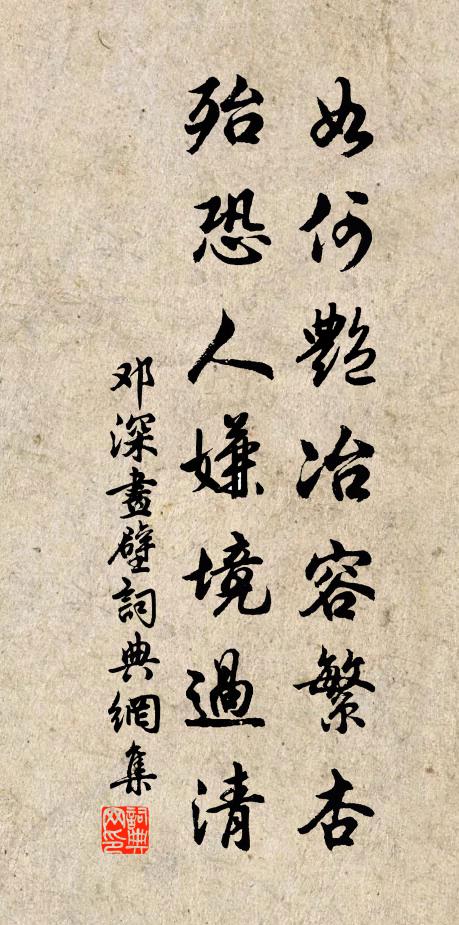 如何艷冶容繁杏
殆恐人嫌境過清
邓深畫壁詞典網集
詞典网印